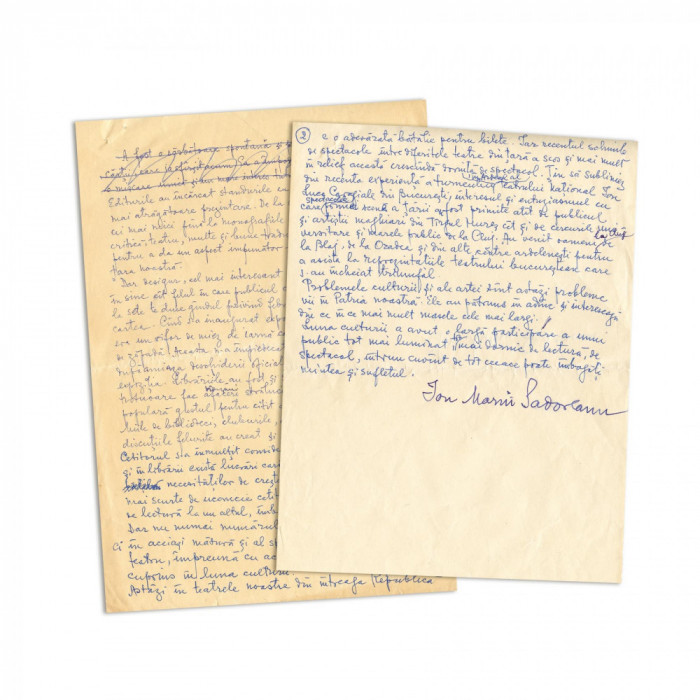 A fost o sărbătoare spontană și
Editurile au încărcat standurile cu
mai atrăgătoare prezentare. De la
cei mai mici până la monografiile
critică, teatru, multe și bune tradu
pentru a da un aspect impunător
țara noastră.
Dar desigur, cel mai interesant
în sine cât felul în care publicul a
la sete te duce gândul privind
cartea. Când s-a inaugurat exp
era un vifor de miez de iarnă c
de zăpadă. Aceasta n-a împiedicat
după-amiaza deschiderii oficiale
expoziția. Librăriile au fost și
populară gustul pentru citit
Miile de biblioteci, cluburile,
discuțiile felurite au creat și
Cetitorul s-a înmulțit consid
și în librării există lucrări care
necesităților de
mai scurte de ucenicie cetit
de lectură la un altul,
Dar nu numai numărul
ci în aceiași măsură și al sp
teatru, împreună cu
cuprins în luna culturii
Astăzi în teatrele noastre din întreaga Republică
2
e o adevărată bătălie pentru bilete. Iar recentul schimb
de spectacole între diferitele teatre din țară a scos și mai mult
în relief această crescândă dornită de spectacol. Țin să subliniez
din recenta experiență a turneului teatrului național Ion
Luca Caragiale din București, interesul și entuziasmul cu
care spectacolele primei scenă a țării a fost primite atât de publicul
și artiștii maghiari din Tîrgul Mureș cât și de cercurile
versitare și marele public de la Cluj. Au venit oameni de la Aiud
la Blaj, de la Oradea și din alte centre ardelenești pentru
a asista la reprezentațiile teatrului bucureștean care
s-au încheiat triumfal.
Problemele culturii și ale artei sânt astăzi probleme
vii în Patria noastră. Ele au pătruns în adânc și interesează
din ce în ce mai mult masele cele mai largi.
Luna culturii a avut o largă participare a unui
public tot mai luminat și mai dornic de lectură, de
spectacol, într-un cuvânt de tot ceeace poate îmbogăți
mintea și sufletul.
Ion Marin Sadoveanu